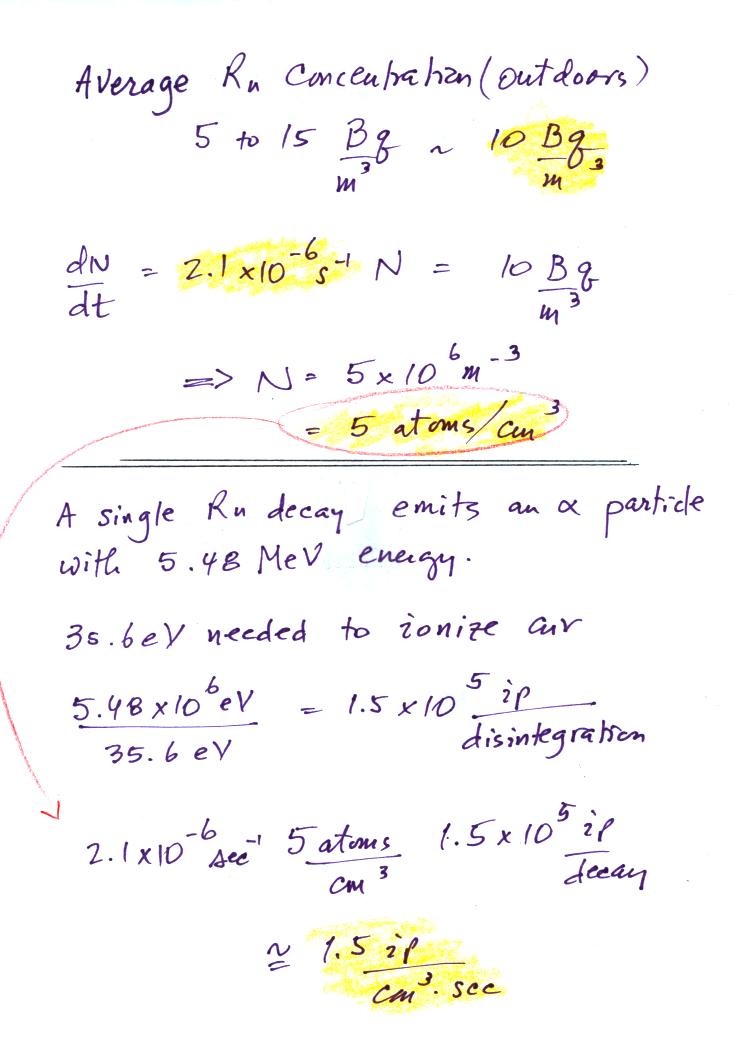 Average Rn Concentration (outdoors)
5 to 15 Bq/m³ ~ 10 Bq/m³
dN/dt = 2.1 x 10⁻⁶ s⁻¹ N = 10 Bq/m³
=> N = 5 x 10⁶ m⁻³
= 5 atoms/cm³
A single Rn decay emits an α particle
with 5.48 MeV energy.
35.6 eV needed to ionize air
5.48 x 10⁶ eV / 35.6 eV = 1.5 x 10⁵ ip/disintegration
2.1 x 10⁻⁶ sec⁻¹ 5 atoms/cm³ 1.5 x 10⁵ ip/decay
≅ 1.5 ip/cm³·sec